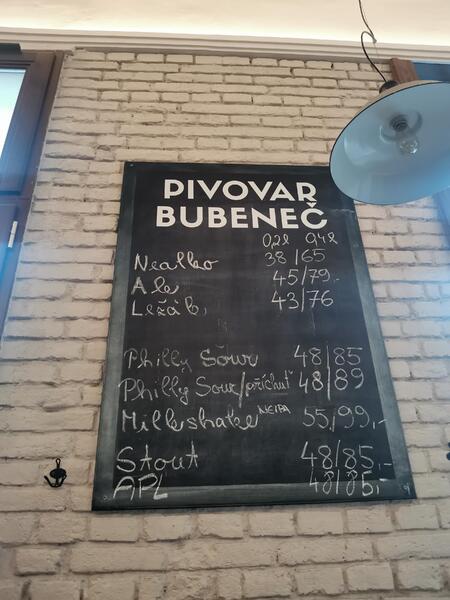 PIVOVAR
BUBENEČ
0,2l 0,4l
Nealko 38/65
Ale 45/79,-
Ležák 43/76
Philly Sour 48/85
Philly Sour/příchuť 48/89
Milkshake NEIPA 55/99,-
Stout 48/85,-
APL 48/85,-